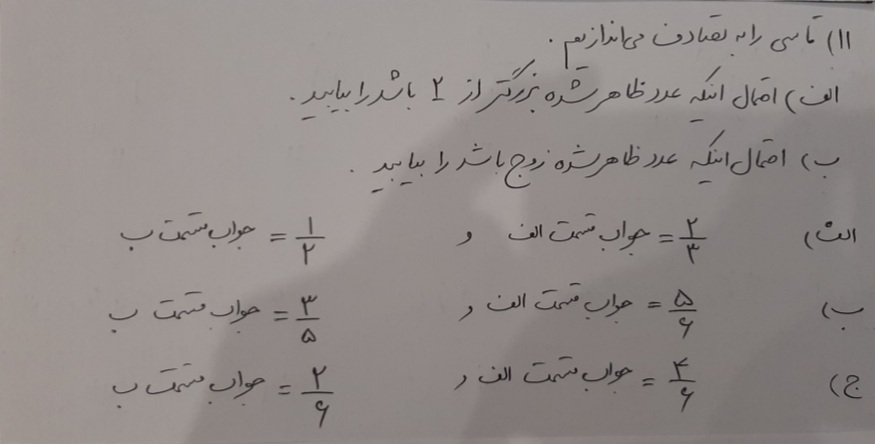 ۱۱) تاسی را به تصادف می‌اندازیم.
الف) احتمال اینکه عدد ظاهر شده بزرگتر از ۲ باشد را بیابید.
ب) احتمال اینکه عدد ظاهر شده زوج باشد را بیابید.
الف) ۲/۳ = جواب قسمت الف و ۱/۲ = جواب قسمت ب
ب) ۵/۶ = جواب قسمت الف و ۳/۵ = جواب قسمت ب
ج) ۴/۶ = جواب قسمت الف و ۲/۶ = جواب قسمت ب